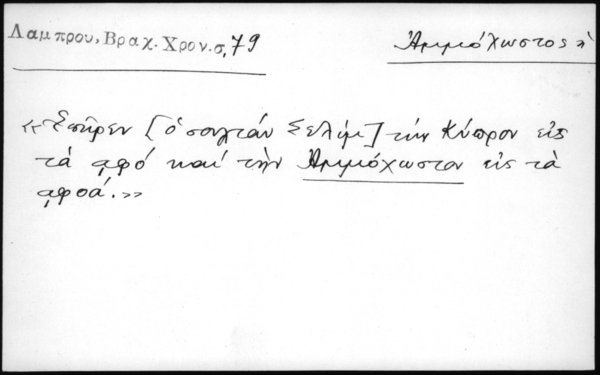 Λαμπρου, Βραχ. Χρον. σ. 79
Ἀμμόχωστος, ἡ
«Ἐπῆρεν [ὁ σουλτάν Σελήμ] τὴν Κύπρον εἰς
τὰ αφό καὶ τὴν Ἀμμόχωστον εἰς τὰ
αφοά.»